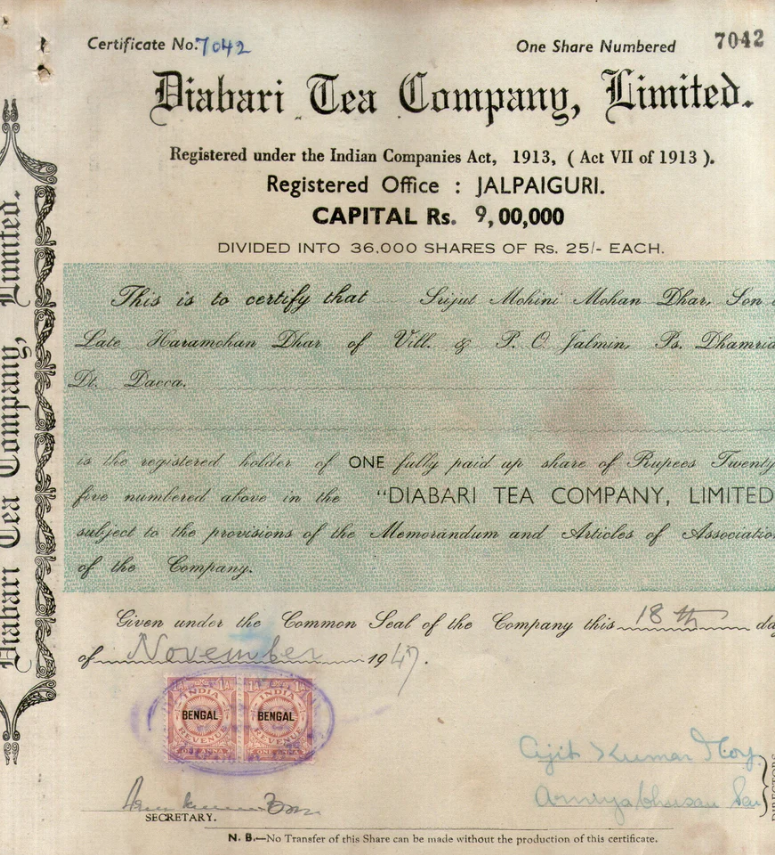 Certificate No. 7042
One Share Numbered 7042
Diabari Tea Company, Limited.
Registered under the Indian Companies Act, 1913, ( Act VII of 1913 ).
Registered Office : JALPAIGURI.
CAPITAL Rs. 9,00,000
DIVIDED INTO 36,000 SHARES OF Rs. 25/- EACH.
This is to certify that Srijut Mohini Mohan Dhar, Son
Late Haramohan Dhar of Vill. & P. O. Jalmin, Ps. Dhamrid
Dt. Dacca.
is the registered holder of ONE fully paid up share of Rupees Twenty
five numbered above in the "DIABARI TEA COMPANY, LIMITED
subject to the provisions of the Memorandum and Articles of Association
of the Company.
Given under the Common Seal of the Company this 18 th da
of November 1947.
INDIA INDIA
BENGAL BENGAL
REVENUE REVENUE
Ajit Kumar Roy
SECRETARY.
DIRECTORS
N. B.—No Transfer of this Share can be made without the production of this certificate.
Diabari Tea Company, Limited.